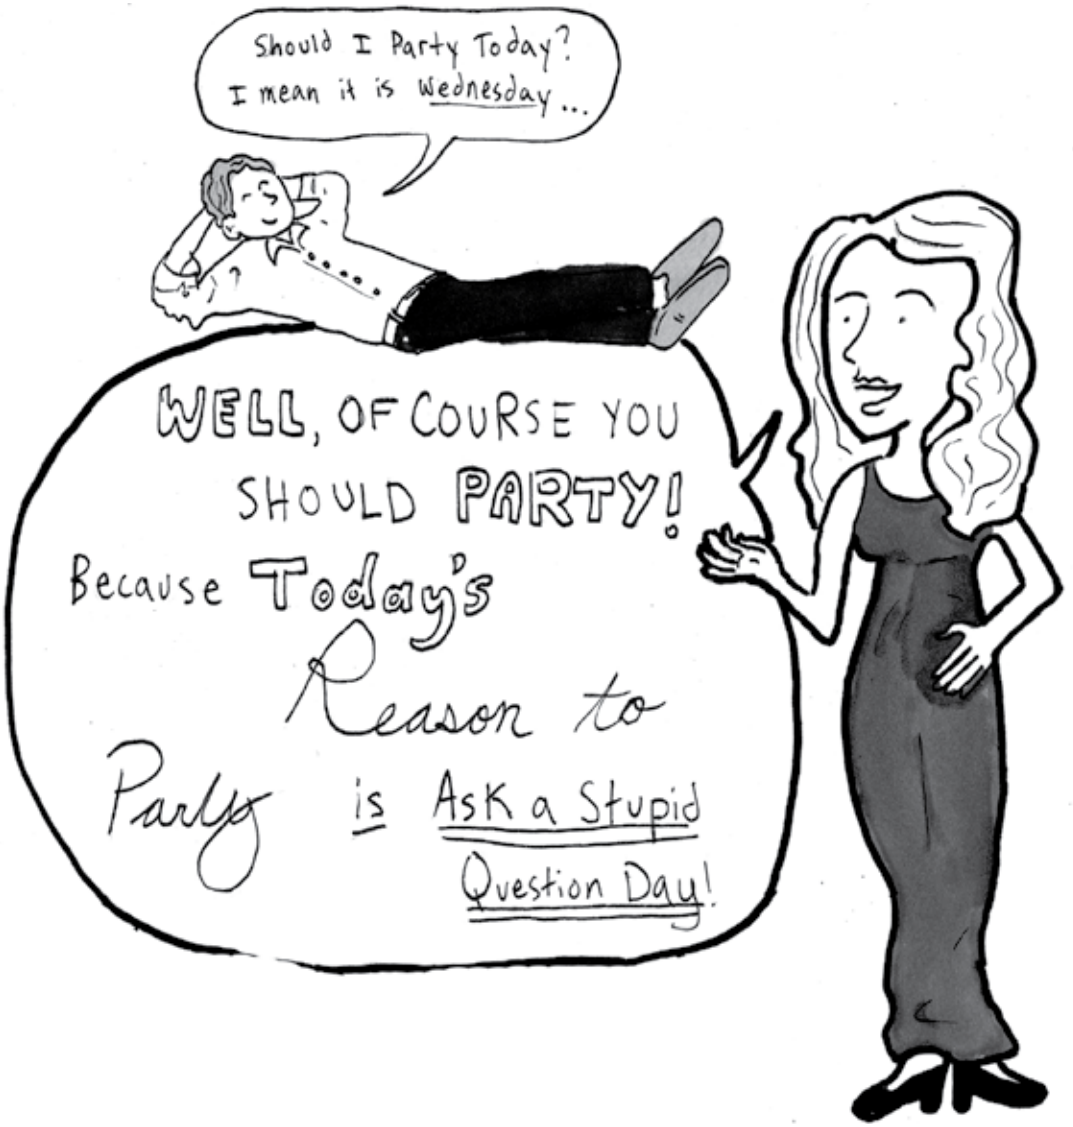 Should I Party Today?
I mean it is Wednesday...
WELL, OF COURSE YOU
SHOULD PARTY!
Because Today's
Reason to
Party is Ask a Stupid
Question Day!